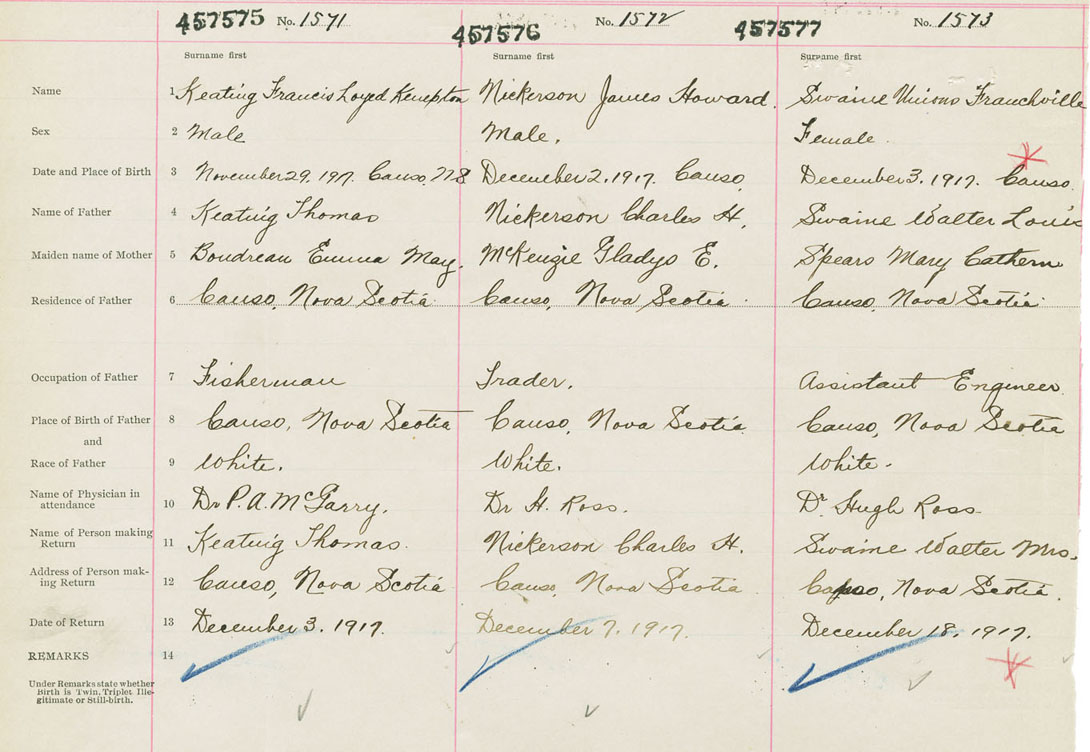 457575 No. 1571 457576 No. 1572 457577 No. 1573
Surname first Surname first Surname first
Name 1 Keating Francis Loyed Kempton Nickerson James Howard. Swaine Unions Franchville
Sex 2 Male Male. Female.
Date and Place of Birth 3 November 29. 1917. Canso. N.S. December 2, 1917. Canso. December 3, 1917. Canso.
Name of Father 4 Keating Thomas Nickerson Charles H. Swaine Walter Louis
Maiden name of Mother 5 Boudreau Emma May. McKenzie Gladys E. Spears Mary Cathern
Residence of Father 6 Canso, Nova Scotia Canso, Nova Scotia. Canso, Nova Scotia.
Occupation of Father 7 Fisherman Trader. Assistant Engineer
Place of Birth of Father 8 Canso, Nova Scotia Canso, Nova Scotia Canso, Nova Scotia
and
Race of Father 9 White. White. White.
Name of Physician in
attendance 10 Dr P. A. McGarry. Dr H. Ross. Dr Hugh Ross
Name of Person making
Return 11 Keating Thomas. Nickerson Charles H. Swaine Walter Mrs.
Address of Person mak-
ing Return 12 Canso, Nova Scotia Canso, Nova Scotia Canso, Nova Scotia.
Date of Return 13 December 3. 1917. December 7, 1917. December 18, 1917.
REMARKS 14
Under Remarks state whether
Birth is Twin, Triplet, Ille-
gitimate or Still-birth.